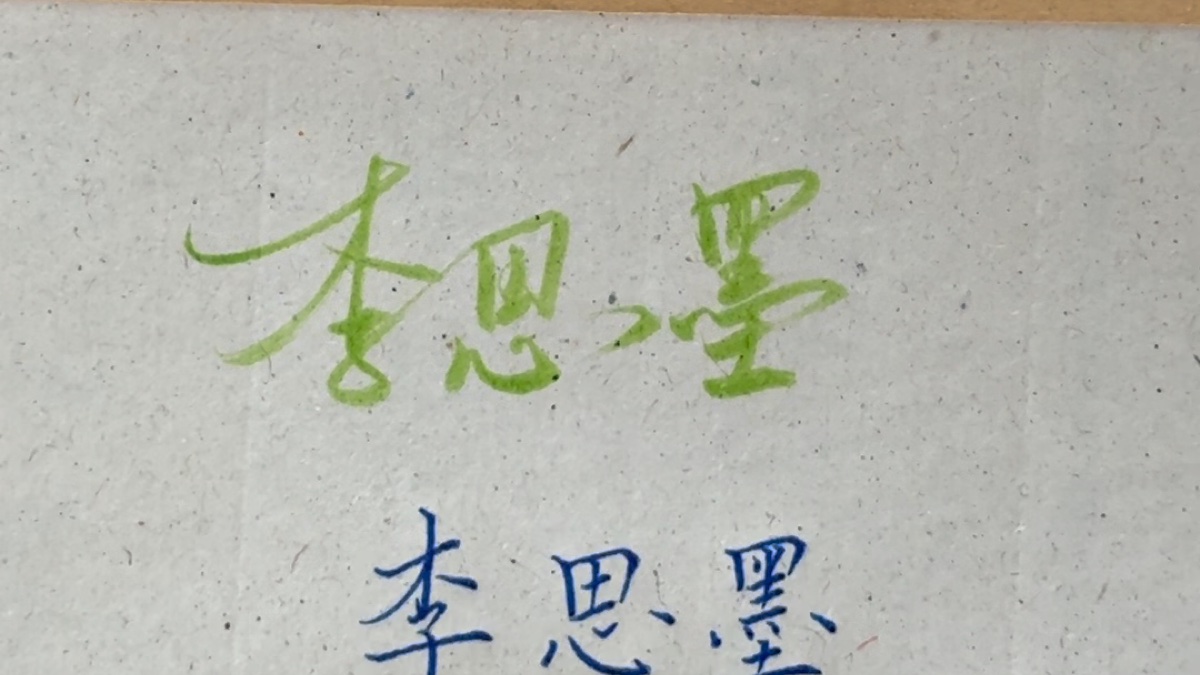 李思墨
李思墨